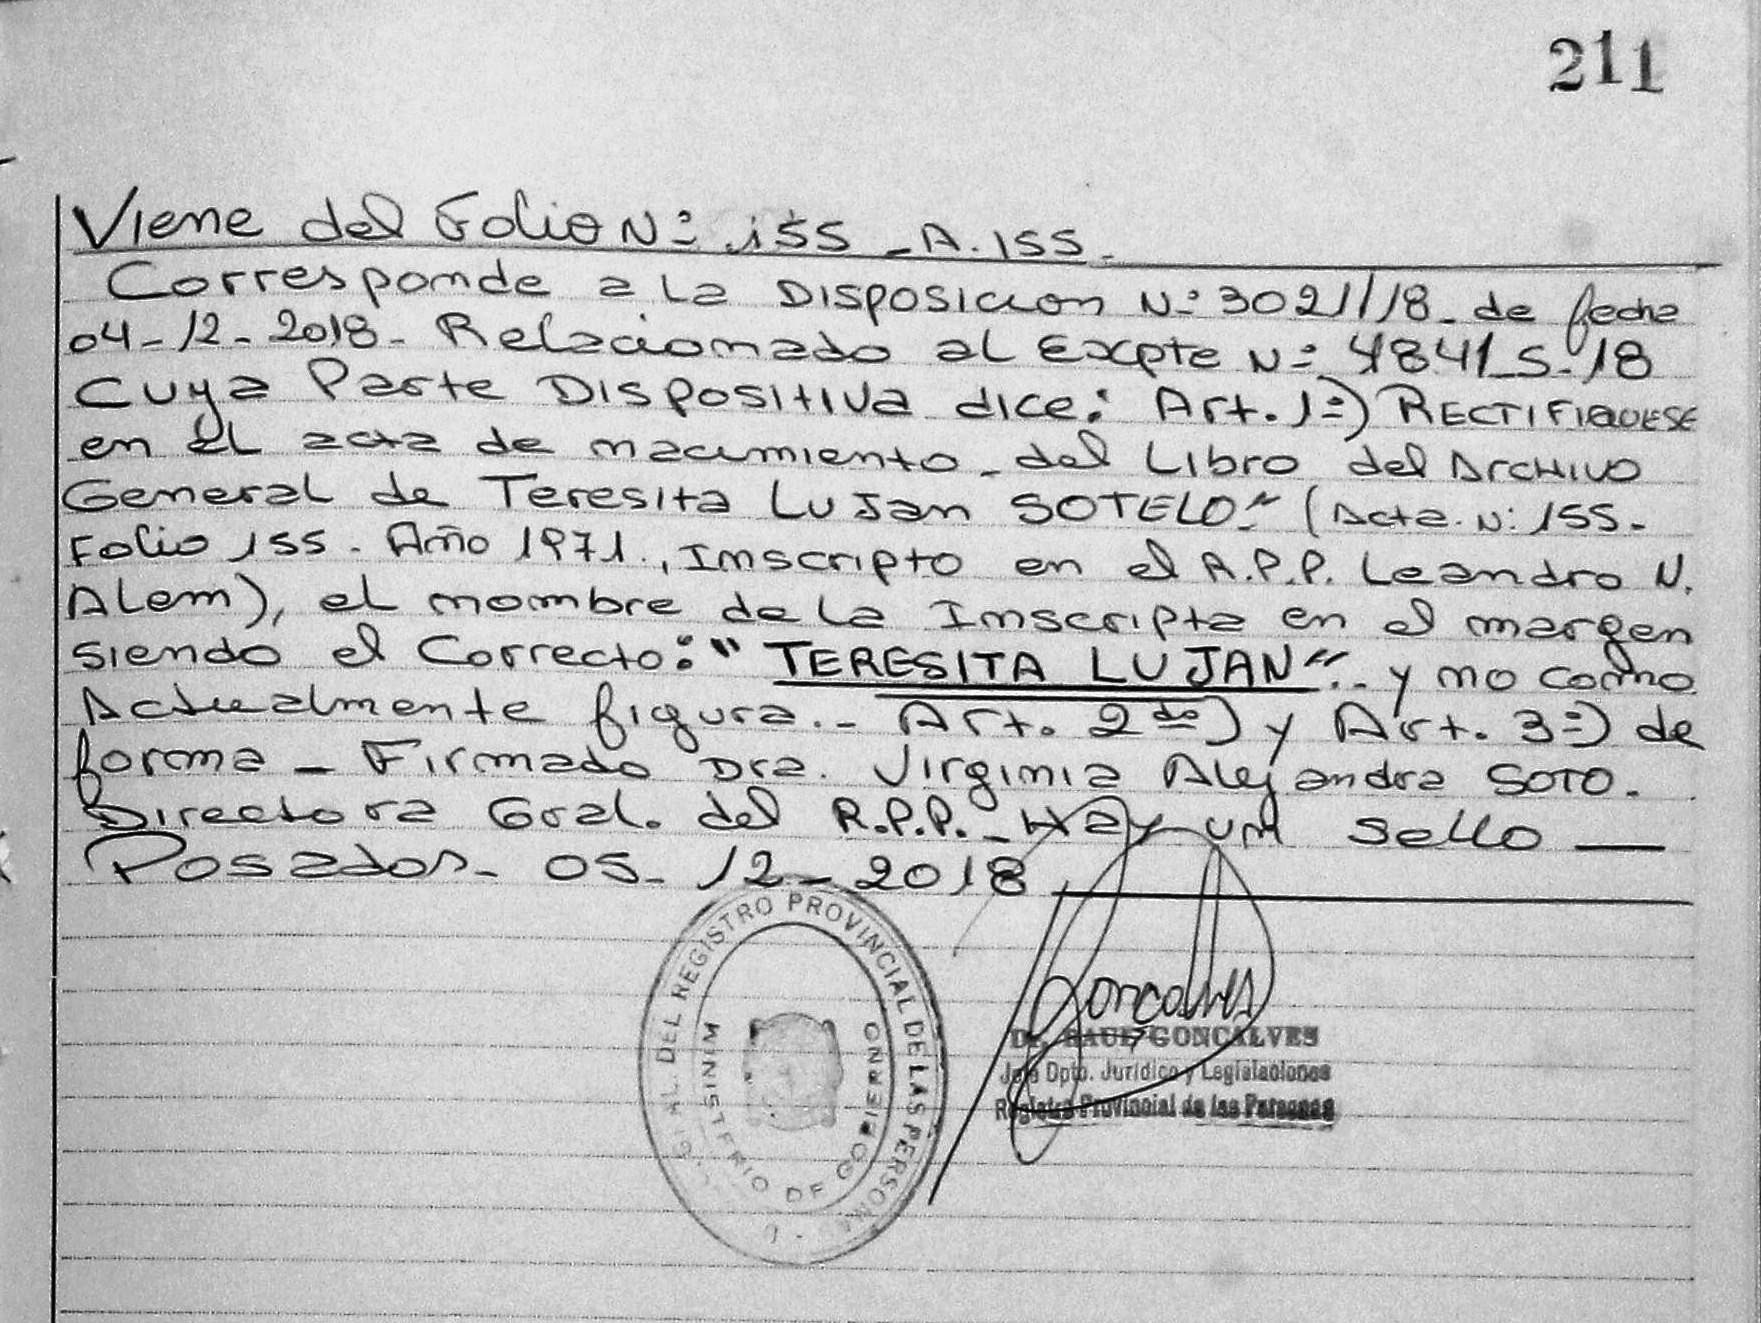 211
Viene del Folio Nº 155 - A. 155.
Corresponde a la Disposicion Nº 3021/18 - de fecha
04-12-2018 - Relacionado al Expte Nº 4841-S-18
Cuya Parte Dispositiva dice: Art. 1º) RECTIFIQUESE
en el acta de nacimiento - del Libro del Archivo
General de Teresita Lujan SOTELO" (Acta. Nº 155.
Folio 155. Año 1971., Inscripto en el R.P.P. Leandro N.
Alem), el nombre de la Inscripta en el margen
siendo el Correcto: "TERESITA LUJAN". y no como
Actualmente figura.- Art. 2do) y Art. 3º) de
forma - Firmado Dra. Virginia Alejandra SOTO.
Directora Gral. del R.P.P. - Hay un sello
Posadas - 05-12-2018
DEL REGISTRO PROVINCIAL DE LAS PERSONAS
MINISTERIO DE GOBIERNO
Goncalves
GONCALVES
Jefe Dpto. Jurídico y Legislaciones
Registro Provincial de las Personas